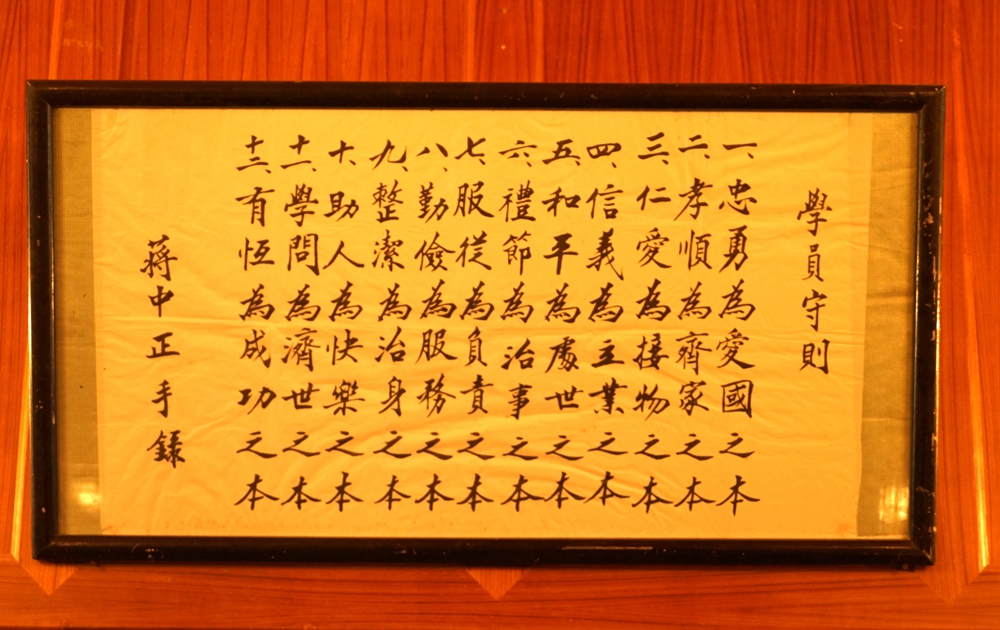 學員守則
一、忠勇為愛國之本
二、孝順為齊家之本
三、仁愛為接物之本
四、信義為立業之本
五、和平為處世之本
六、禮節為治事之本
七、服從為負責之本
八、勤儉為服務之本
九、整潔為治身之本
十、助人為快樂之本
十一、學問為濟世之本
十二、有恆為成功之本
蔣中正手錄